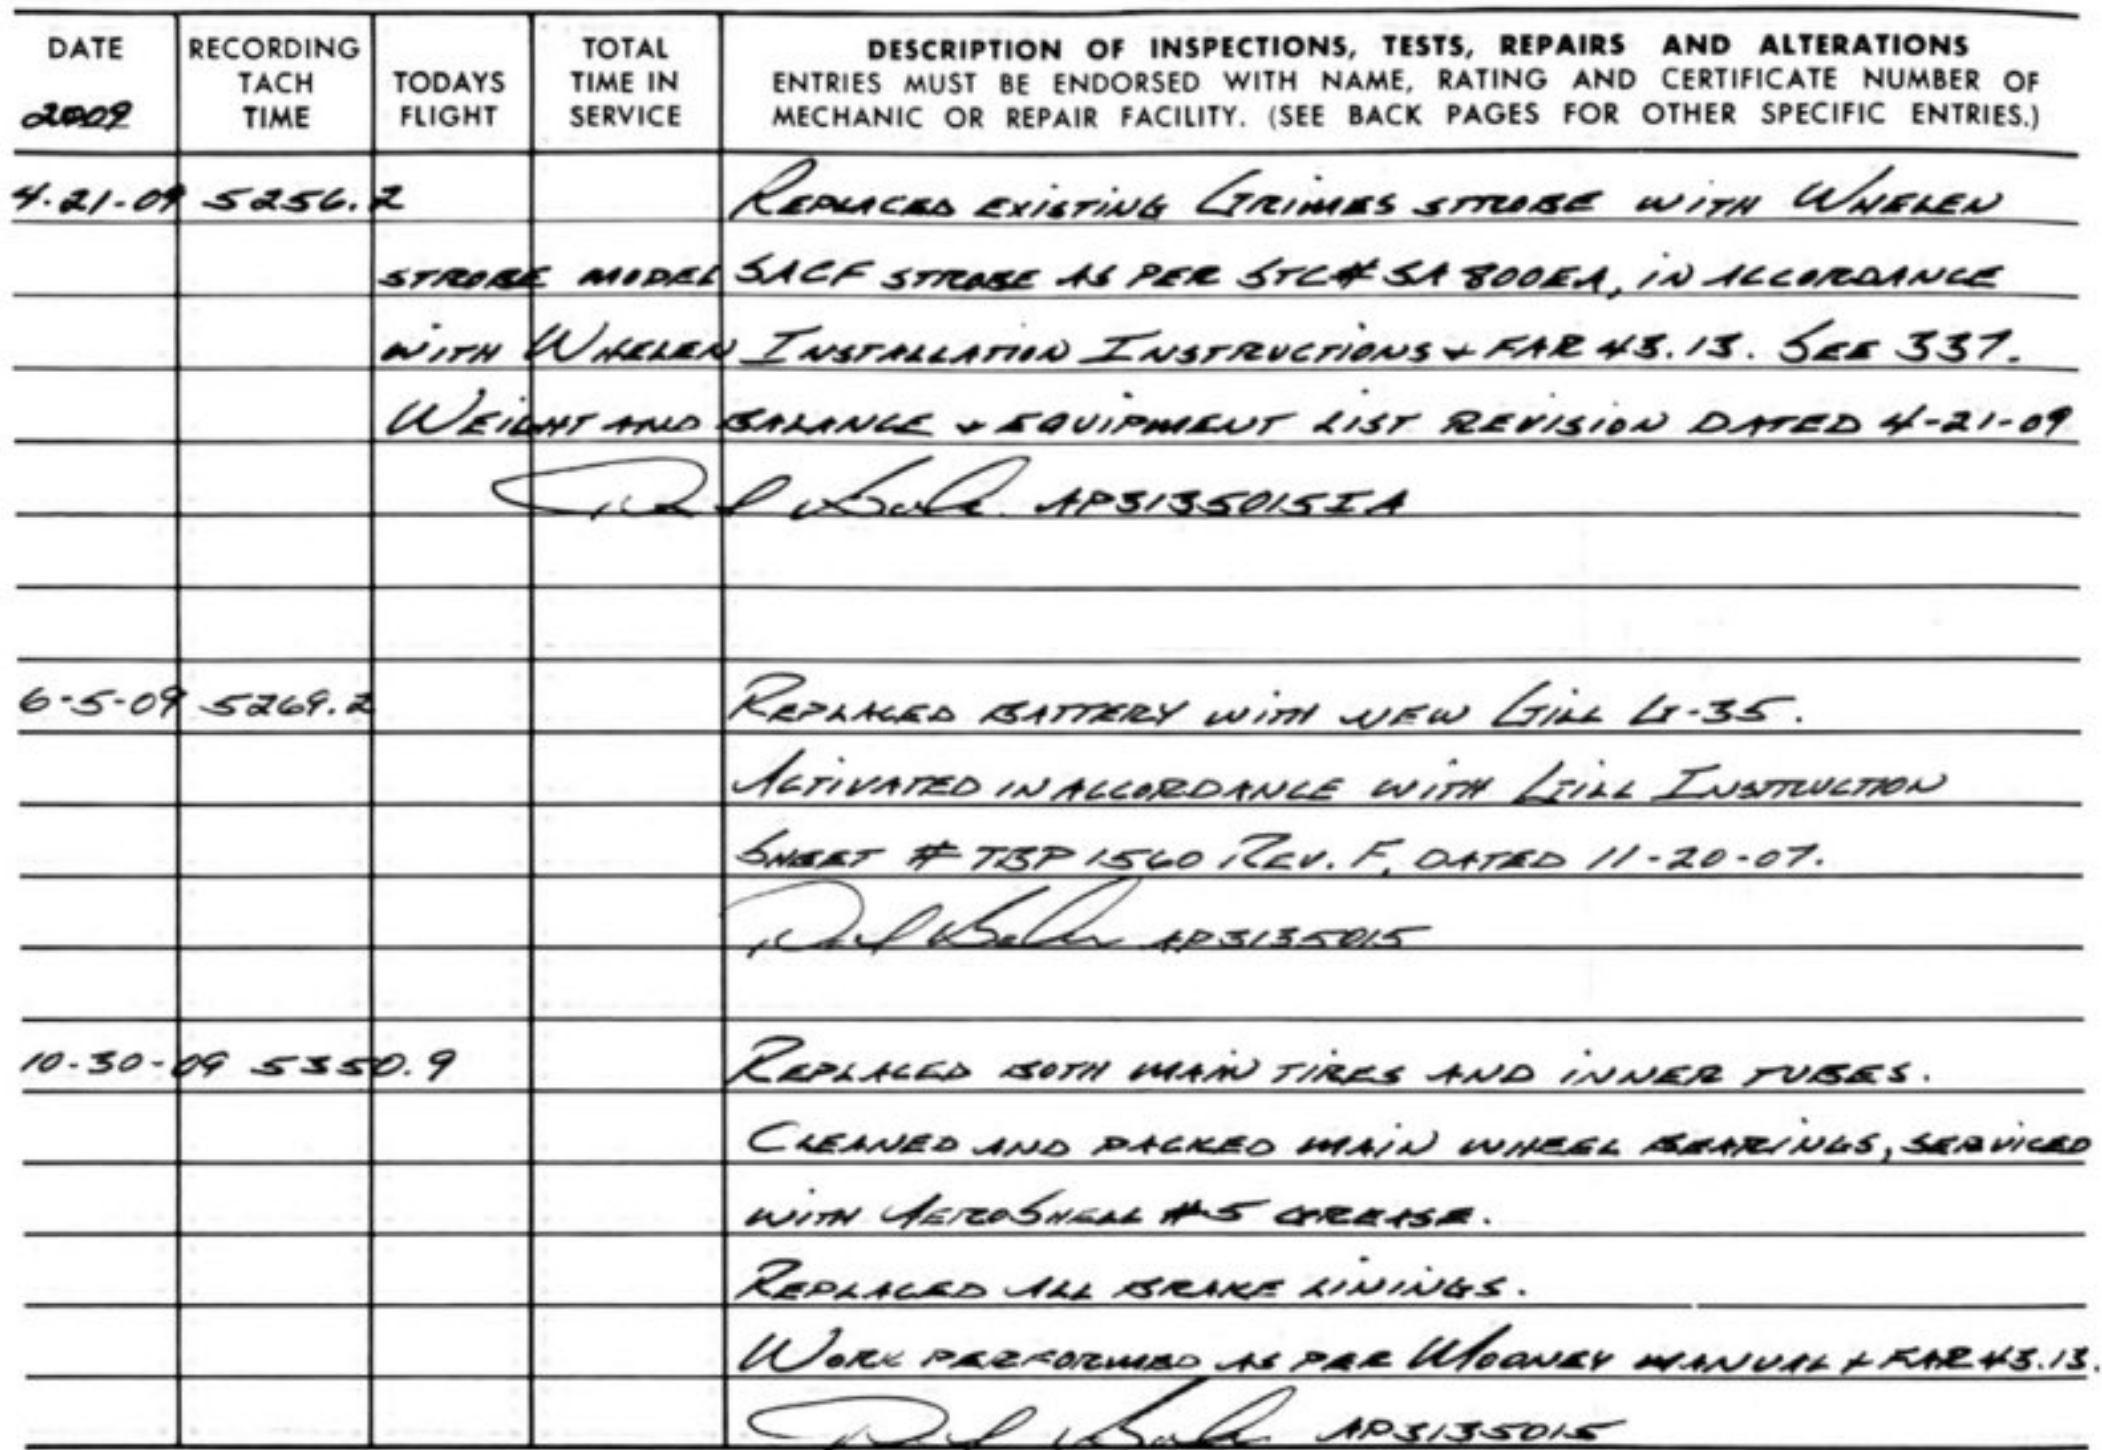 DATE
2009
RECORDING
TACH
TIME
TODAYS
FLIGHT
TOTAL
TIME IN
SERVICE
DESCRIPTION OF INSPECTIONS, TESTS, REPAIRS AND ALTERATIONS
ENTRIES MUST BE ENDORSED WITH NAME, RATING AND CERTIFICATE NUMBER OF
MECHANIC OR REPAIR FACILITY. (SEE BACK PAGES FOR OTHER SPECIFIC ENTRIES.)
4-21-09 5256.2 REPLACED EXISTING GRIMES STROBE WITH WHELEN
STROBE MODEL SACF STROBE AS PER STC# SA800EA, IN ACCORDANCE
WITH WHELEN INSTALLATION INSTRUCTIONS + FAR 43.13. SEE 337.
WEIGHT AND BALANCE + EQUIPMENT LIST REVISION DATED 4-21-09
AP3135015IA
6-5-09 5269.2 REPLACED BATTERY WITH NEW GILL G-35.
ACTIVATED IN ACCORDANCE WITH GILL INSTRUCTION
SHEET # TBP1560 REV. F, DATED 11-20-07.
AP3135015
10-30-09 5350.9 REPLACED BOTH MAIN TIRES AND INNER TUBES.
CLEANED AND PACKED MAIN WHEEL BEARINGS, SERVICED
WITH AEROSHELL #5 GREASE.
REPLACED ALL BRAKE LININGS.
WORK PERFORMED AS PER MOONEY MANUAL + FAR 43.13.
AP3135015